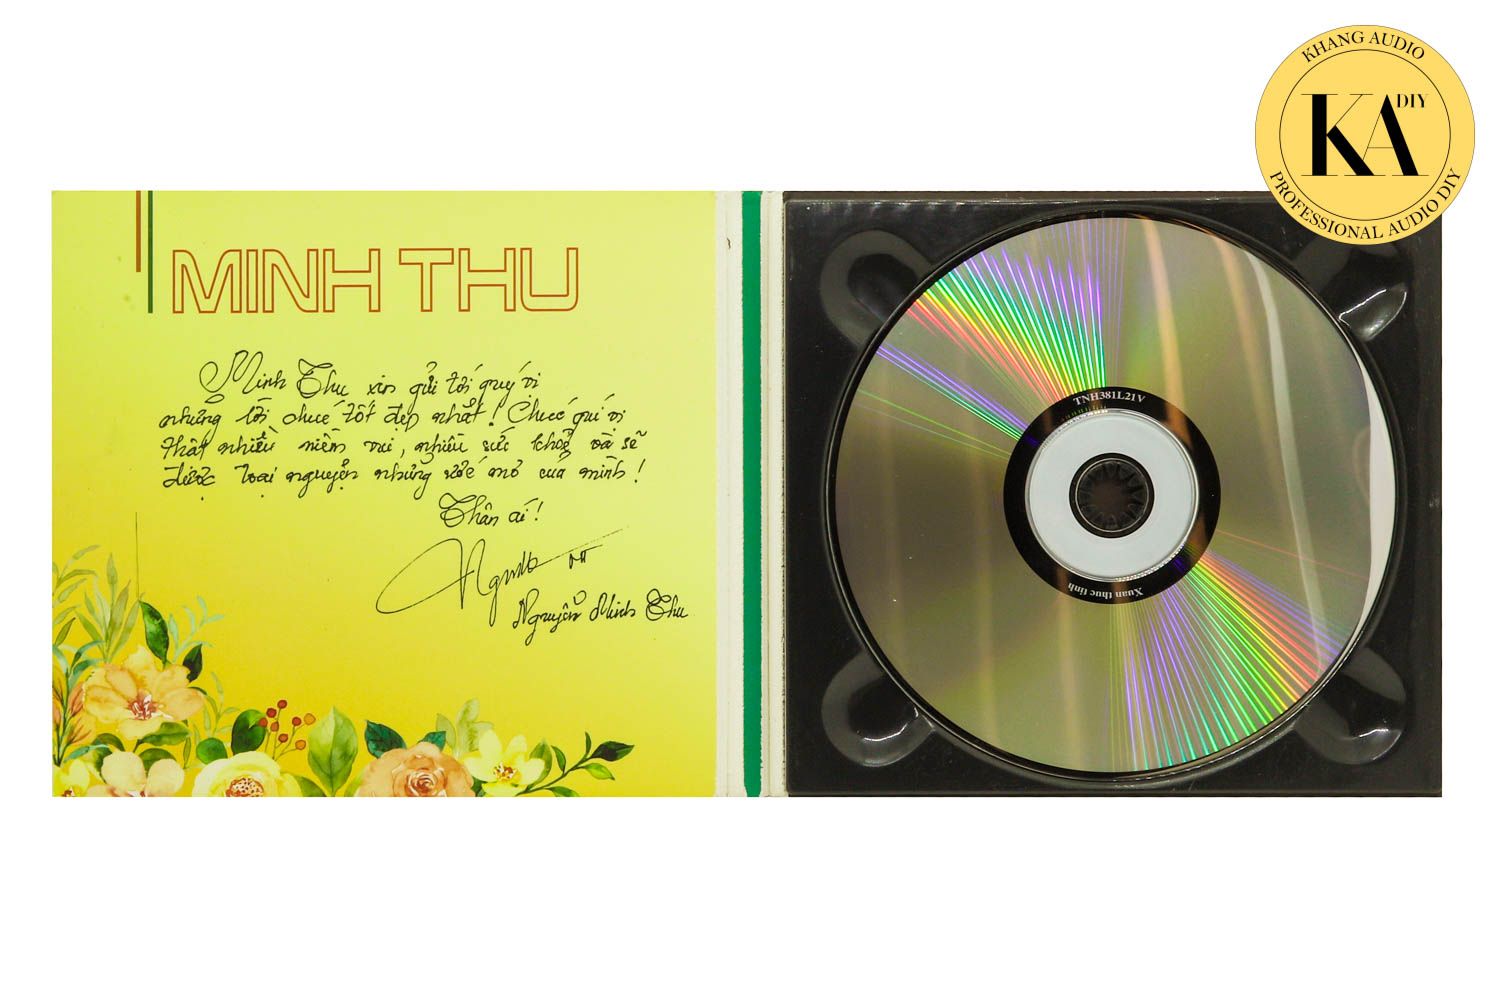 MINH THU
Minh Thu xin gửi tới quý vị
những lời chúc tốt đẹp nhất! Chúc quí vị
thật nhiều niềm vui, nhiều sức khoẻ và sẽ
được toại nguyện những ước mơ của mình!
Thân ái!
Nguyễn Minh Thu
TNH381L21V
Xuan thuc tinh
KHANG AUDIO
KA DIY
PROFESSIONAL AUDIO DIY